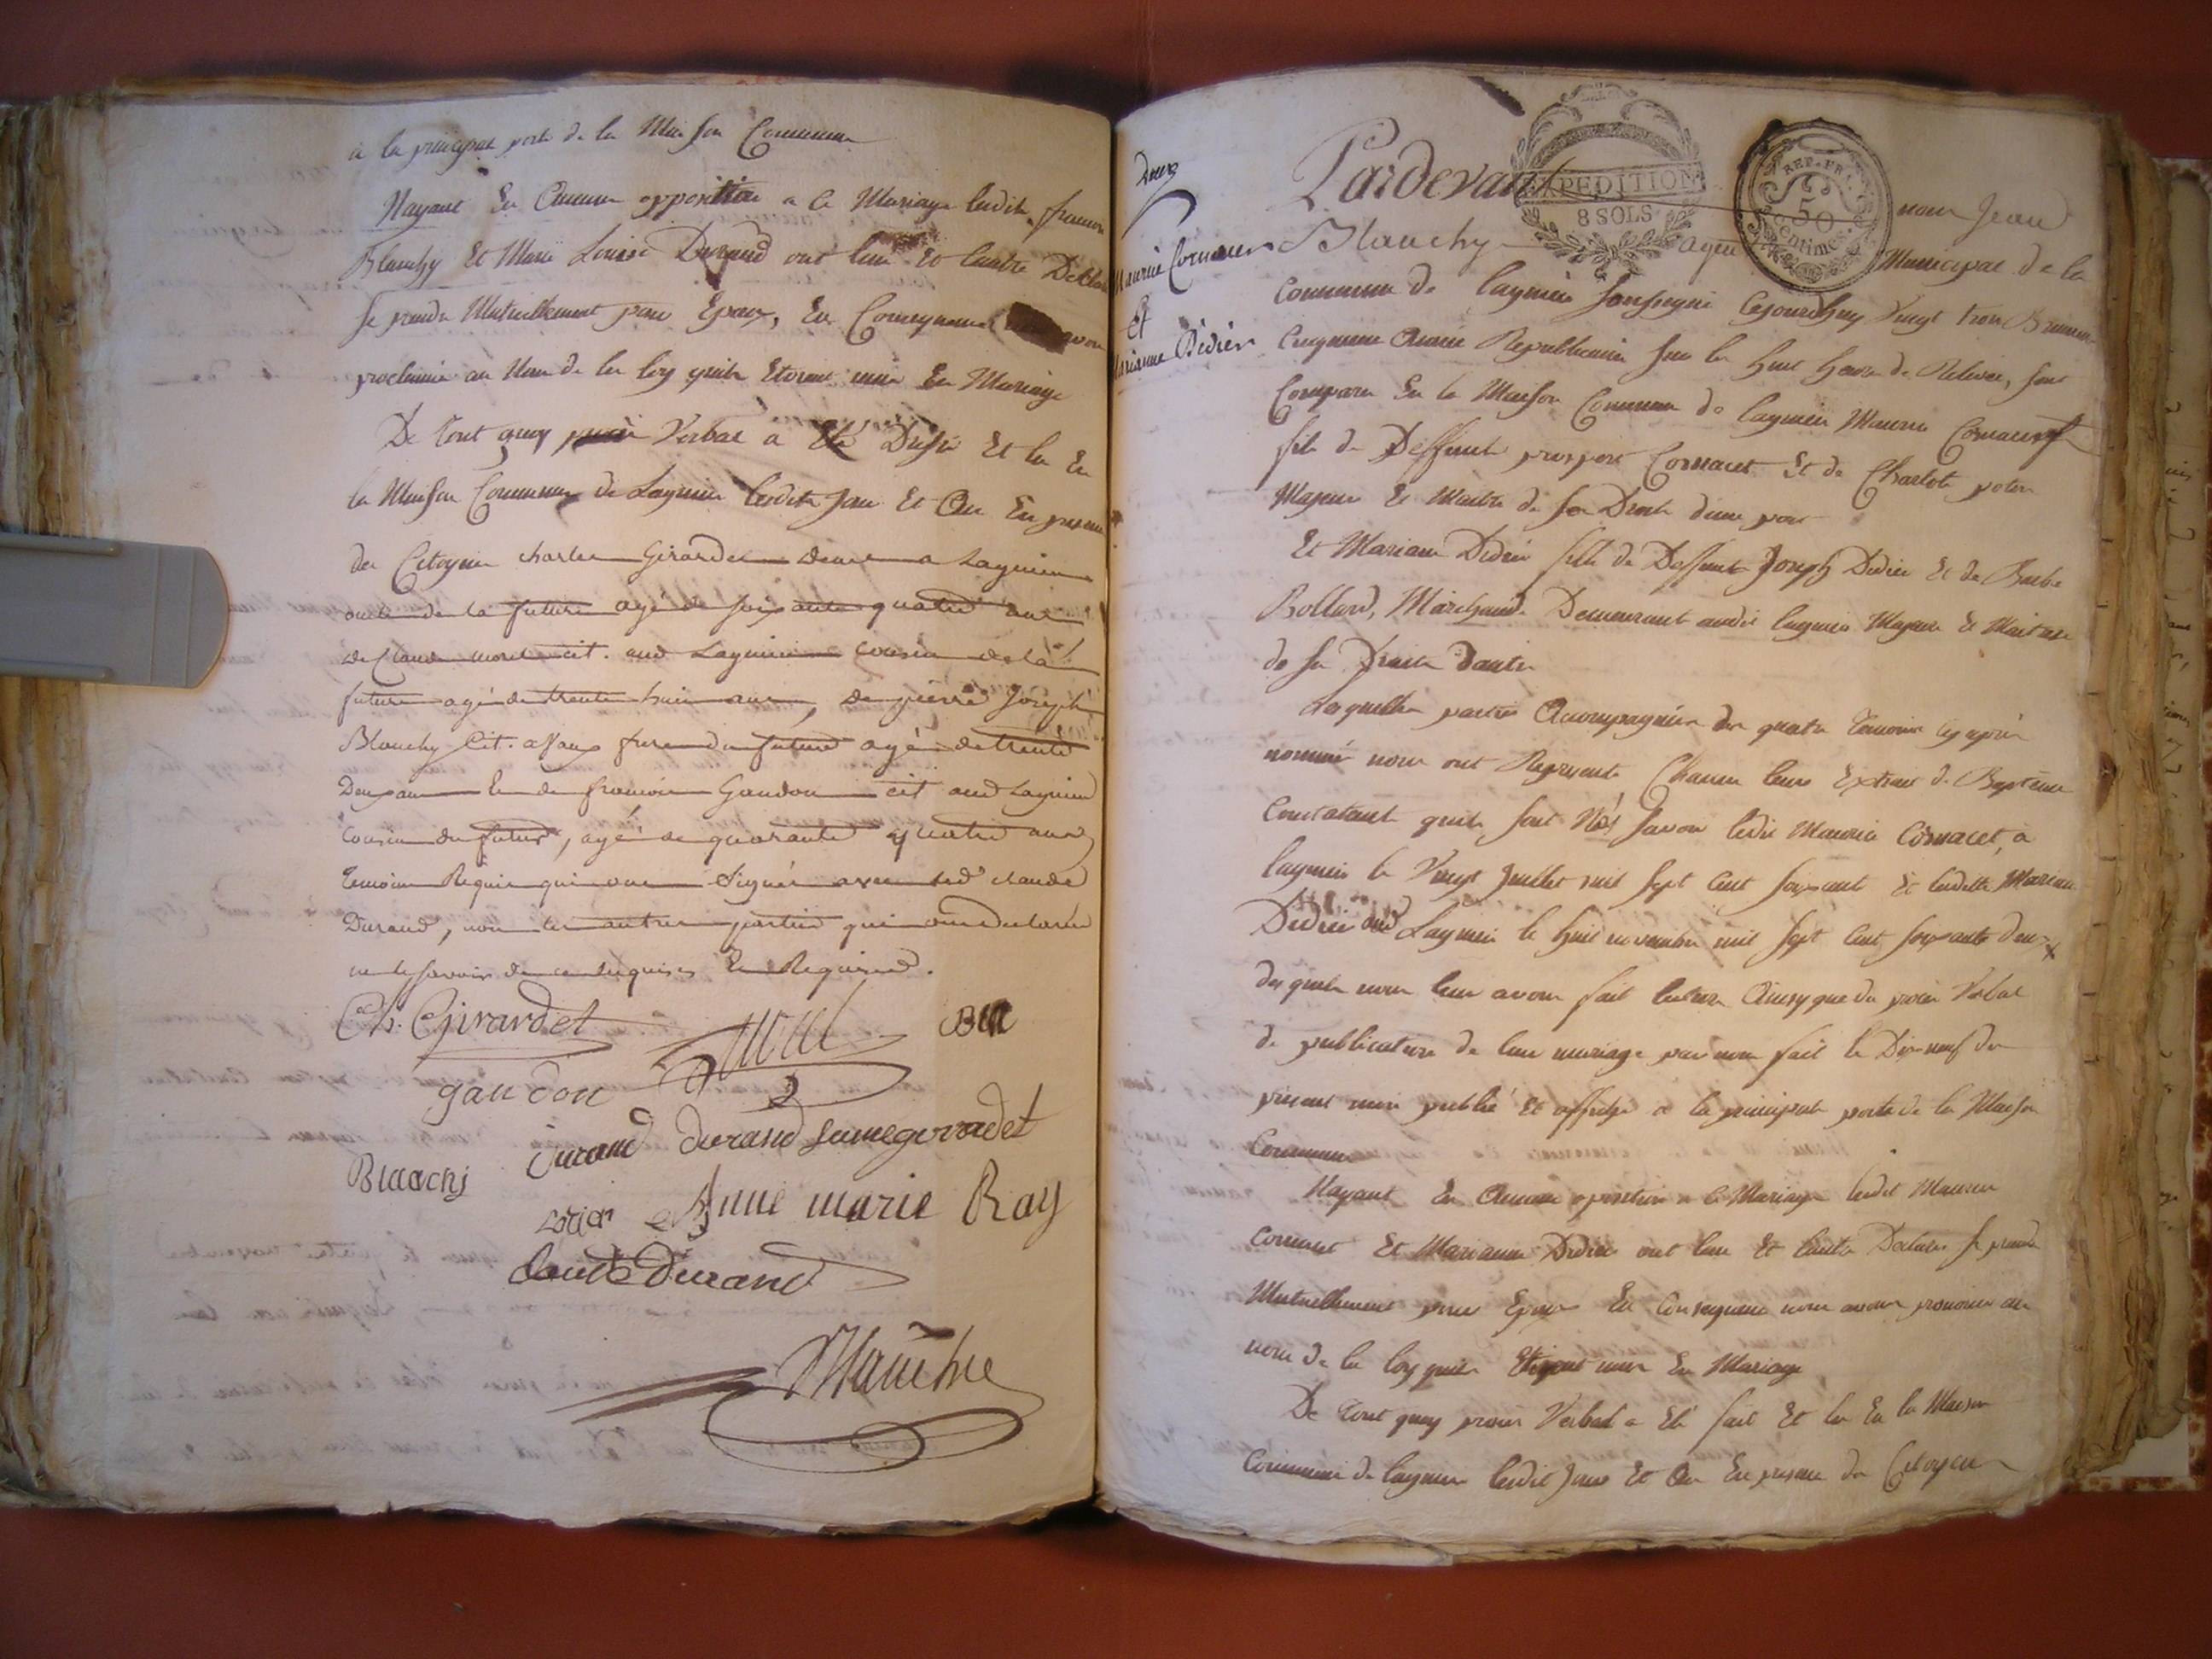 à la principal porte de la Maison Commune
Nayant Eu Aucune opposition a Ce Mariage lesdits francois
Blanchy Et Marie Louise Durand ont lun Et lautre Déclaré
se prendre Mutuellement pour Epoux, En Consequence avons
proclamé au Nom de la loy quils Etoient unis En Mariage
De tout quoy procès Verbal a Eté Dressé Et lu En
la Maison Commune de Lagnieu lesdits Jour Et An En presence
des Citoyens charles Girardet demt a Lagnieu
oncle de la future agé de soixante quatre ans
de Claude morel cit. aud Lagnieu cousin de la
future agé de trente huit ans, de pierre Joseph
Blanchy Cit. a Vaux frere du futur agé de trente
Deux ans Et de francois Gaudon cit aud Lagnieu
cousin du futur, agé de quarante quatre ans
temoins Requis qui ont Signés avec led claude
Durand, non les autres parties qui ont declarés
ne le savoir de ce enquises Et Requises.
Ch. Girardet
gaudon
durand durand femme gerardet
Blanchj
Anne marie Ray
Claude Durand
Blanchy
Maurice Cornacet
Et
Marianne Didier
Pardevant nous Jean
EXPEDITION
8 SOLS
REP. FR.
50
Centimes.
Blanchy agent Municipal de la
Commune de lagnieu soussigné Cejourdhuy Vingt trois Brumaire
Cinquieme Année Republicaine sur les huit heures de Relevée, sont
Comparus En la Maison Commune de lagnieu Maurice Cornacet
fils de Deffunt prosper Cornacet Et de Charlote
Majeur Et Maitre de ses Droits dune part
Et Mariane Didier fille de Deffunt Joseph Didier Et de Barbe
Bollard, Marchande Demeurant audit lagnieu Majeure Et Maitresse
de ses Droits dautre
Lesquelles parties Accompagnées des quatre temoins cy après
nommés nous ont Representé Chacun leurs Extraits de Baptême
Constatant quils sont Nés Savoir ledit Maurice Cornacet, à
lagnieu le Vingt Juillet mil sept Cent soixante Et ladite Mariane
Didier aud Lagnieu le huit novembre mil sept Cent soixante deux
desquels nous leur avons fait lecture Ainsy que du procès Verbal
de publication de leur mariage par nous fait le Dix neuf du
présent mois publié Et affiché a la principale porte de la Maison
Commune
Nayant Eu Aucune oposition a Ce Mariage ledit Maurice
Cornacet Et Marianne Didier ont lun Et lautre Déclarés se prendre
Mutuellement pour Epoux En Consequence nous avons prononcé au
nom de la loy quils Etoient unis En Mariage
De tout quoy procès Verbal a Eté fait Et lu En la Maison
Commune de lagnieu lesdit Jour Et An En presence des Citoyens